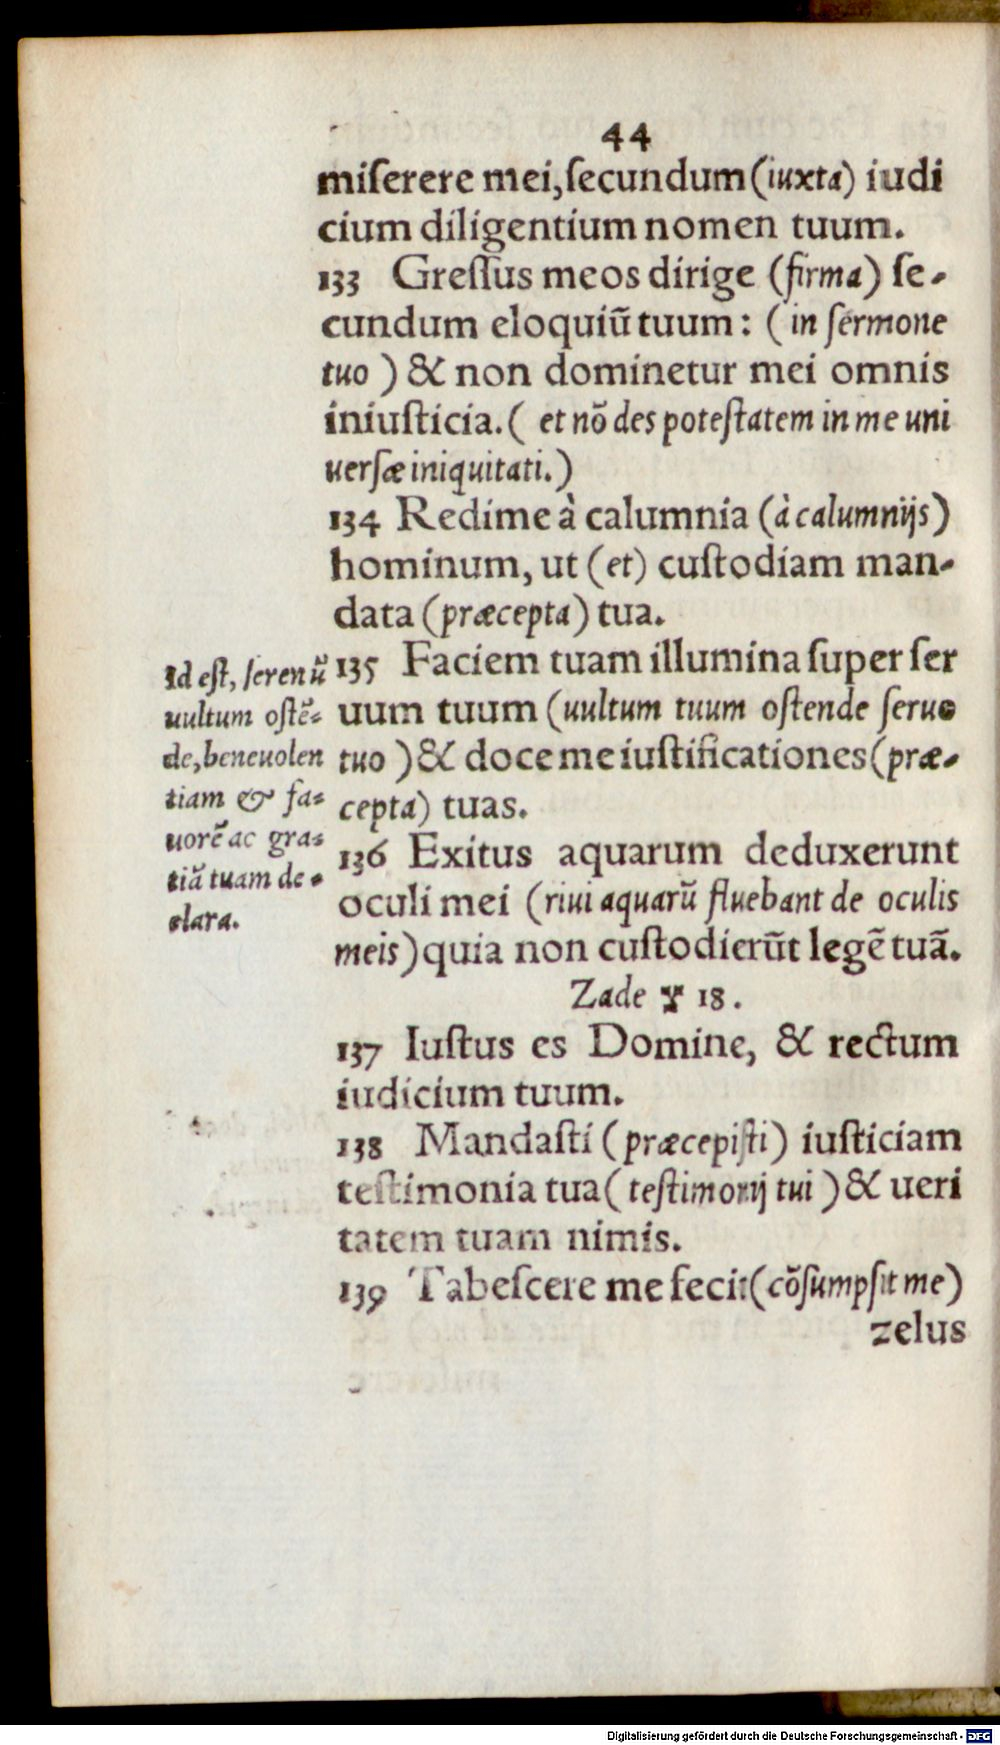 44
miſerere mei, ſecundum (iuxta) iudi
cium diligentium nomen tuum.
133 Greſſus meos dirige (firma) ſe-
cundum eloquiũ tuum: (in ſermone
tuo) & non dominetur mei omnis
iniuſticia. (et nõ des poteſtatem in me uni
uerſæ iniquitati.)
134 Redime à calumnia (à calumnijs)
hominum, ut (et) cuſtodiam man-
data (præcepta) tua.
135 Faciem tuam illumina ſuper ſer
uum tuum (uultum tuum oſtende ſeruo
tuo) & doce me iuſtificationes (præ-
cepta) tuas.
136 Exitus aquarum deduxerunt
oculi mei (riui aquarũ fluebant de oculis
meis) quia non cuſtodierũt legẽ tuã.
Id eſt, ſerenũ
uultum oſtẽ-
de, beneuolen
tiam & fa-
uorẽ ac gra-
tiã tuam de-
clara.
Zade צ 18.
137 Iuſtus es Domine, & rectum
iudicium tuum.
138 Mandaſti (præcepiſti) iuſticiam
teſtimonia tua (teſtimonij tui) & ueri
tatem tuam nimis.
139 Tabeſcere me fecit (cõſumpſit me)
zelus
Digitalisierung gefördert durch die Deutsche Forschungsgemeinschaft - DFG